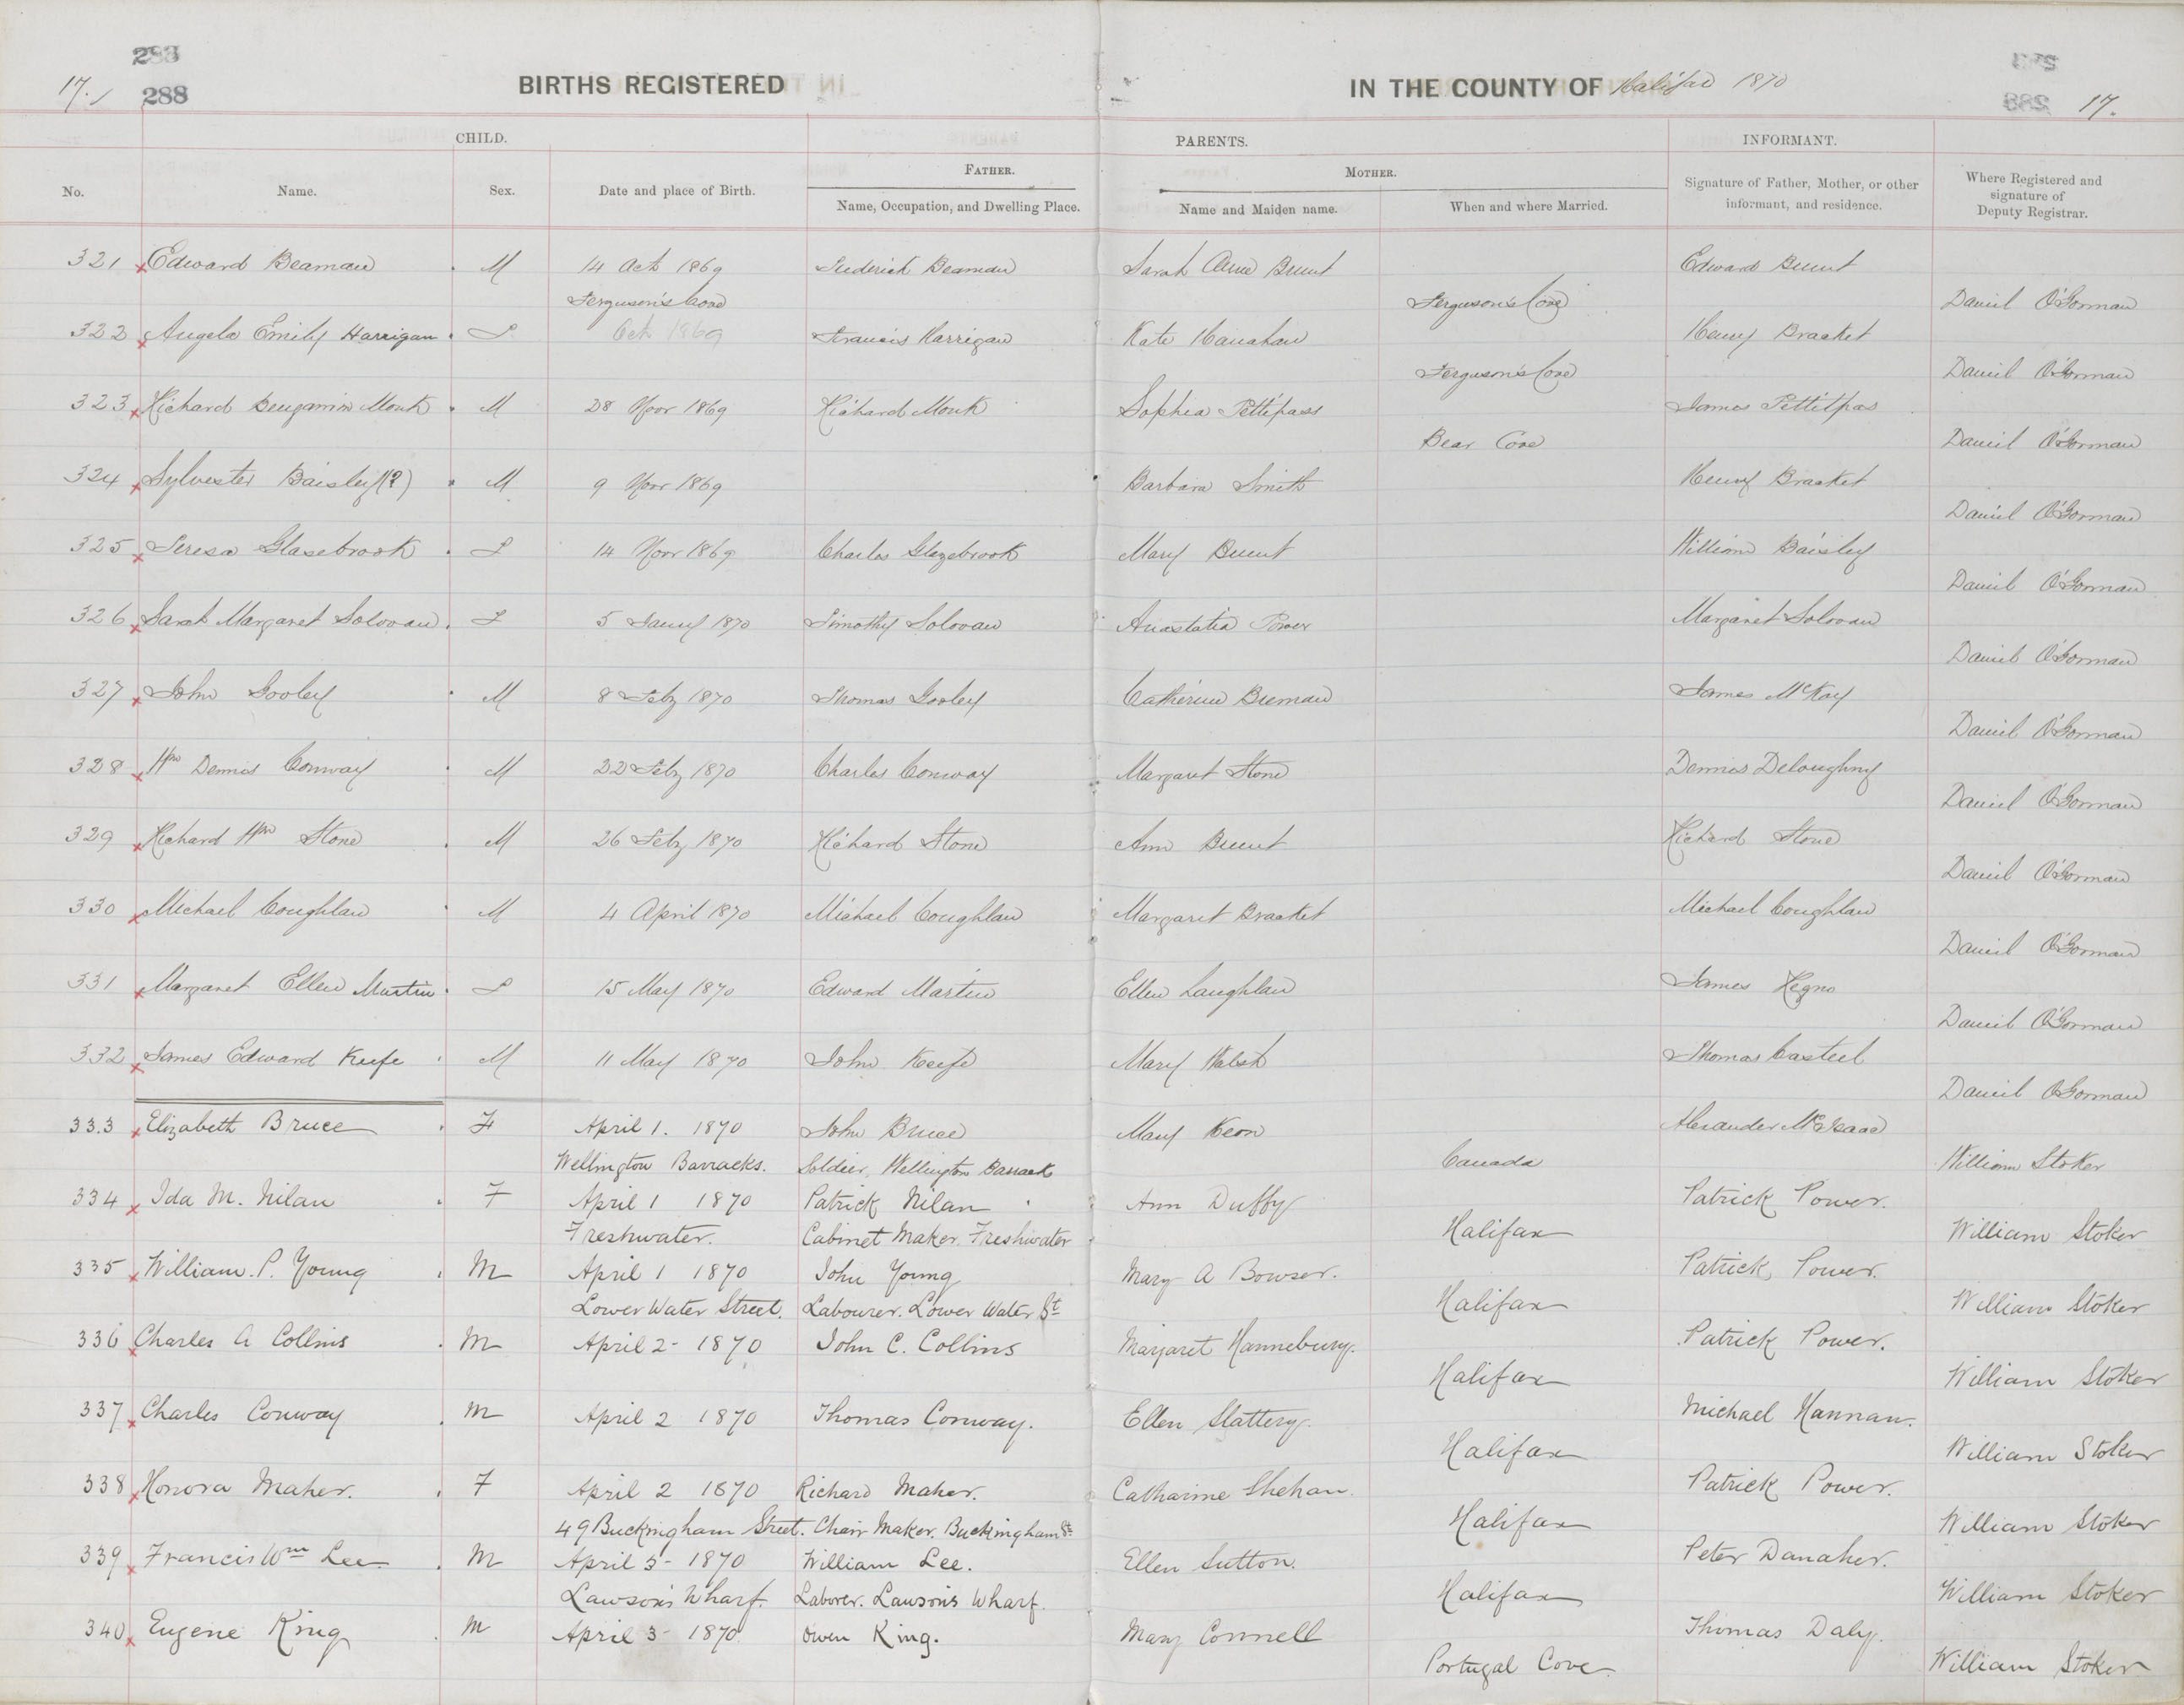 283
17. 288 BIRTHS REGISTERED IN THE COUNTY OF Halifax 1870 17.
CHILD. PARENTS. INFORMANT.
FATHER. MOTHER.
No. Name. Sex. Date and place of Birth. Name, Occupation, and Dwelling Place. Name and Maiden name. When and where Married. Signature of Father, Mother, or other informant, and residence. Where Registered and signature of Deputy Registrar.
321 Edward Beaman M 14 Oct 1869 Frederick Beaman Sarah Anne Brunt Edward Brunt
Ferguson's Cove Ferguson's Cove Daniel O'Gorman
322 Angela Emily Harrigan F Oct 1869 Francis Harrigan Kate Hanahan Henry Bracket
Ferguson's Cove Daniel O'Gorman
323 Richard Benjamin Monk M 28 Novr 1869 Richard Monk Sophia Pettipass James Pettitpas
Bear Cove Daniel O'Gorman
324 Sylvester Baisley (?) M 9 Novr 1869 Barbara Smith Henry Bracket
Daniel O'Gorman
325 Teresa Glasebrook F 14 Novr 1869 Charles Glazebrook Mary Brunt William Baisley
Daniel O'Gorman
326 Sarah Margaret Solovan F 5 Jany 1870 Timothy Solovan Anastatia Power Margaret Solovan
Daniel O'Gorman
327 John Gooley M 8 Feby 1870 Thomas Gooley Catherine Brenan James McKay
Daniel O'Gorman
328 Wm Dennis Conway M 22 Feby 1870 Charles Conway Margaret Stone Dennis Deloughny
Daniel O'Gorman
329 Richard Wm Stone M 26 Feby 1870 Richard Stone Ann Brunt Richard Stone
Daniel O'Gorman
330 Michael Coughlan M 4 April 1870 Michael Coughlan Margaret Bracket Michael Coughlan
Daniel O'Gorman
331 Margaret Ellen Martin F 15 May 1870 Edward Martin Ellen Laughlan James
Daniel O'Gorman
332 James Edward Keefe M 11 May 1870 John Keefe Mary Walsh Thomas Casteel
Daniel O'Gorman
333 Elizabeth Bruce F April 1. 1870 John Bruce Mary Keon Alexander McIsaac
Wellington Barracks. Soldier, Wellington Barrack Canada William Stoker
334 Ida M. Nilan F April 1 1870 Patrick Nilan Ann Duffy Patrick Power.
Freshwater. Cabinet Maker. Freshwater Halifax William Stoker
335 William. P. Young M April 1 1870 John Young Mary A Bowser. Patrick Power.
Lower Water Street. Labourer. Lower Water St Halifax William Stoker
336 Charles A Collins M April 2 - 1870 John C. Collins Margaret Hannebury. Patrick Power.
Halifax William Stoker
337 Charles Conway M April 2 1870 Thomas Conway. Ellen Slattery. Michael Hannan.
Halifax William Stoker
338 Honora Maher. F April 2 1870 Richard Maher. Catharine Shehan. Patrick Power.
49 Buckingham Street. Chair Maker. Buckingham St Halifax William Stoker
339 Francis Wm Lee M April 3 - 1870 William Lee. Ellen Sutton. Peter Danaher.
Lawson's Wharf. Laborer. Lawson's Wharf. Halifax William Stoker
340 Eugene King M April 3 - 1870 Owen King. Mary Connell Thomas Daly.
Portugal Cove. William Stoker